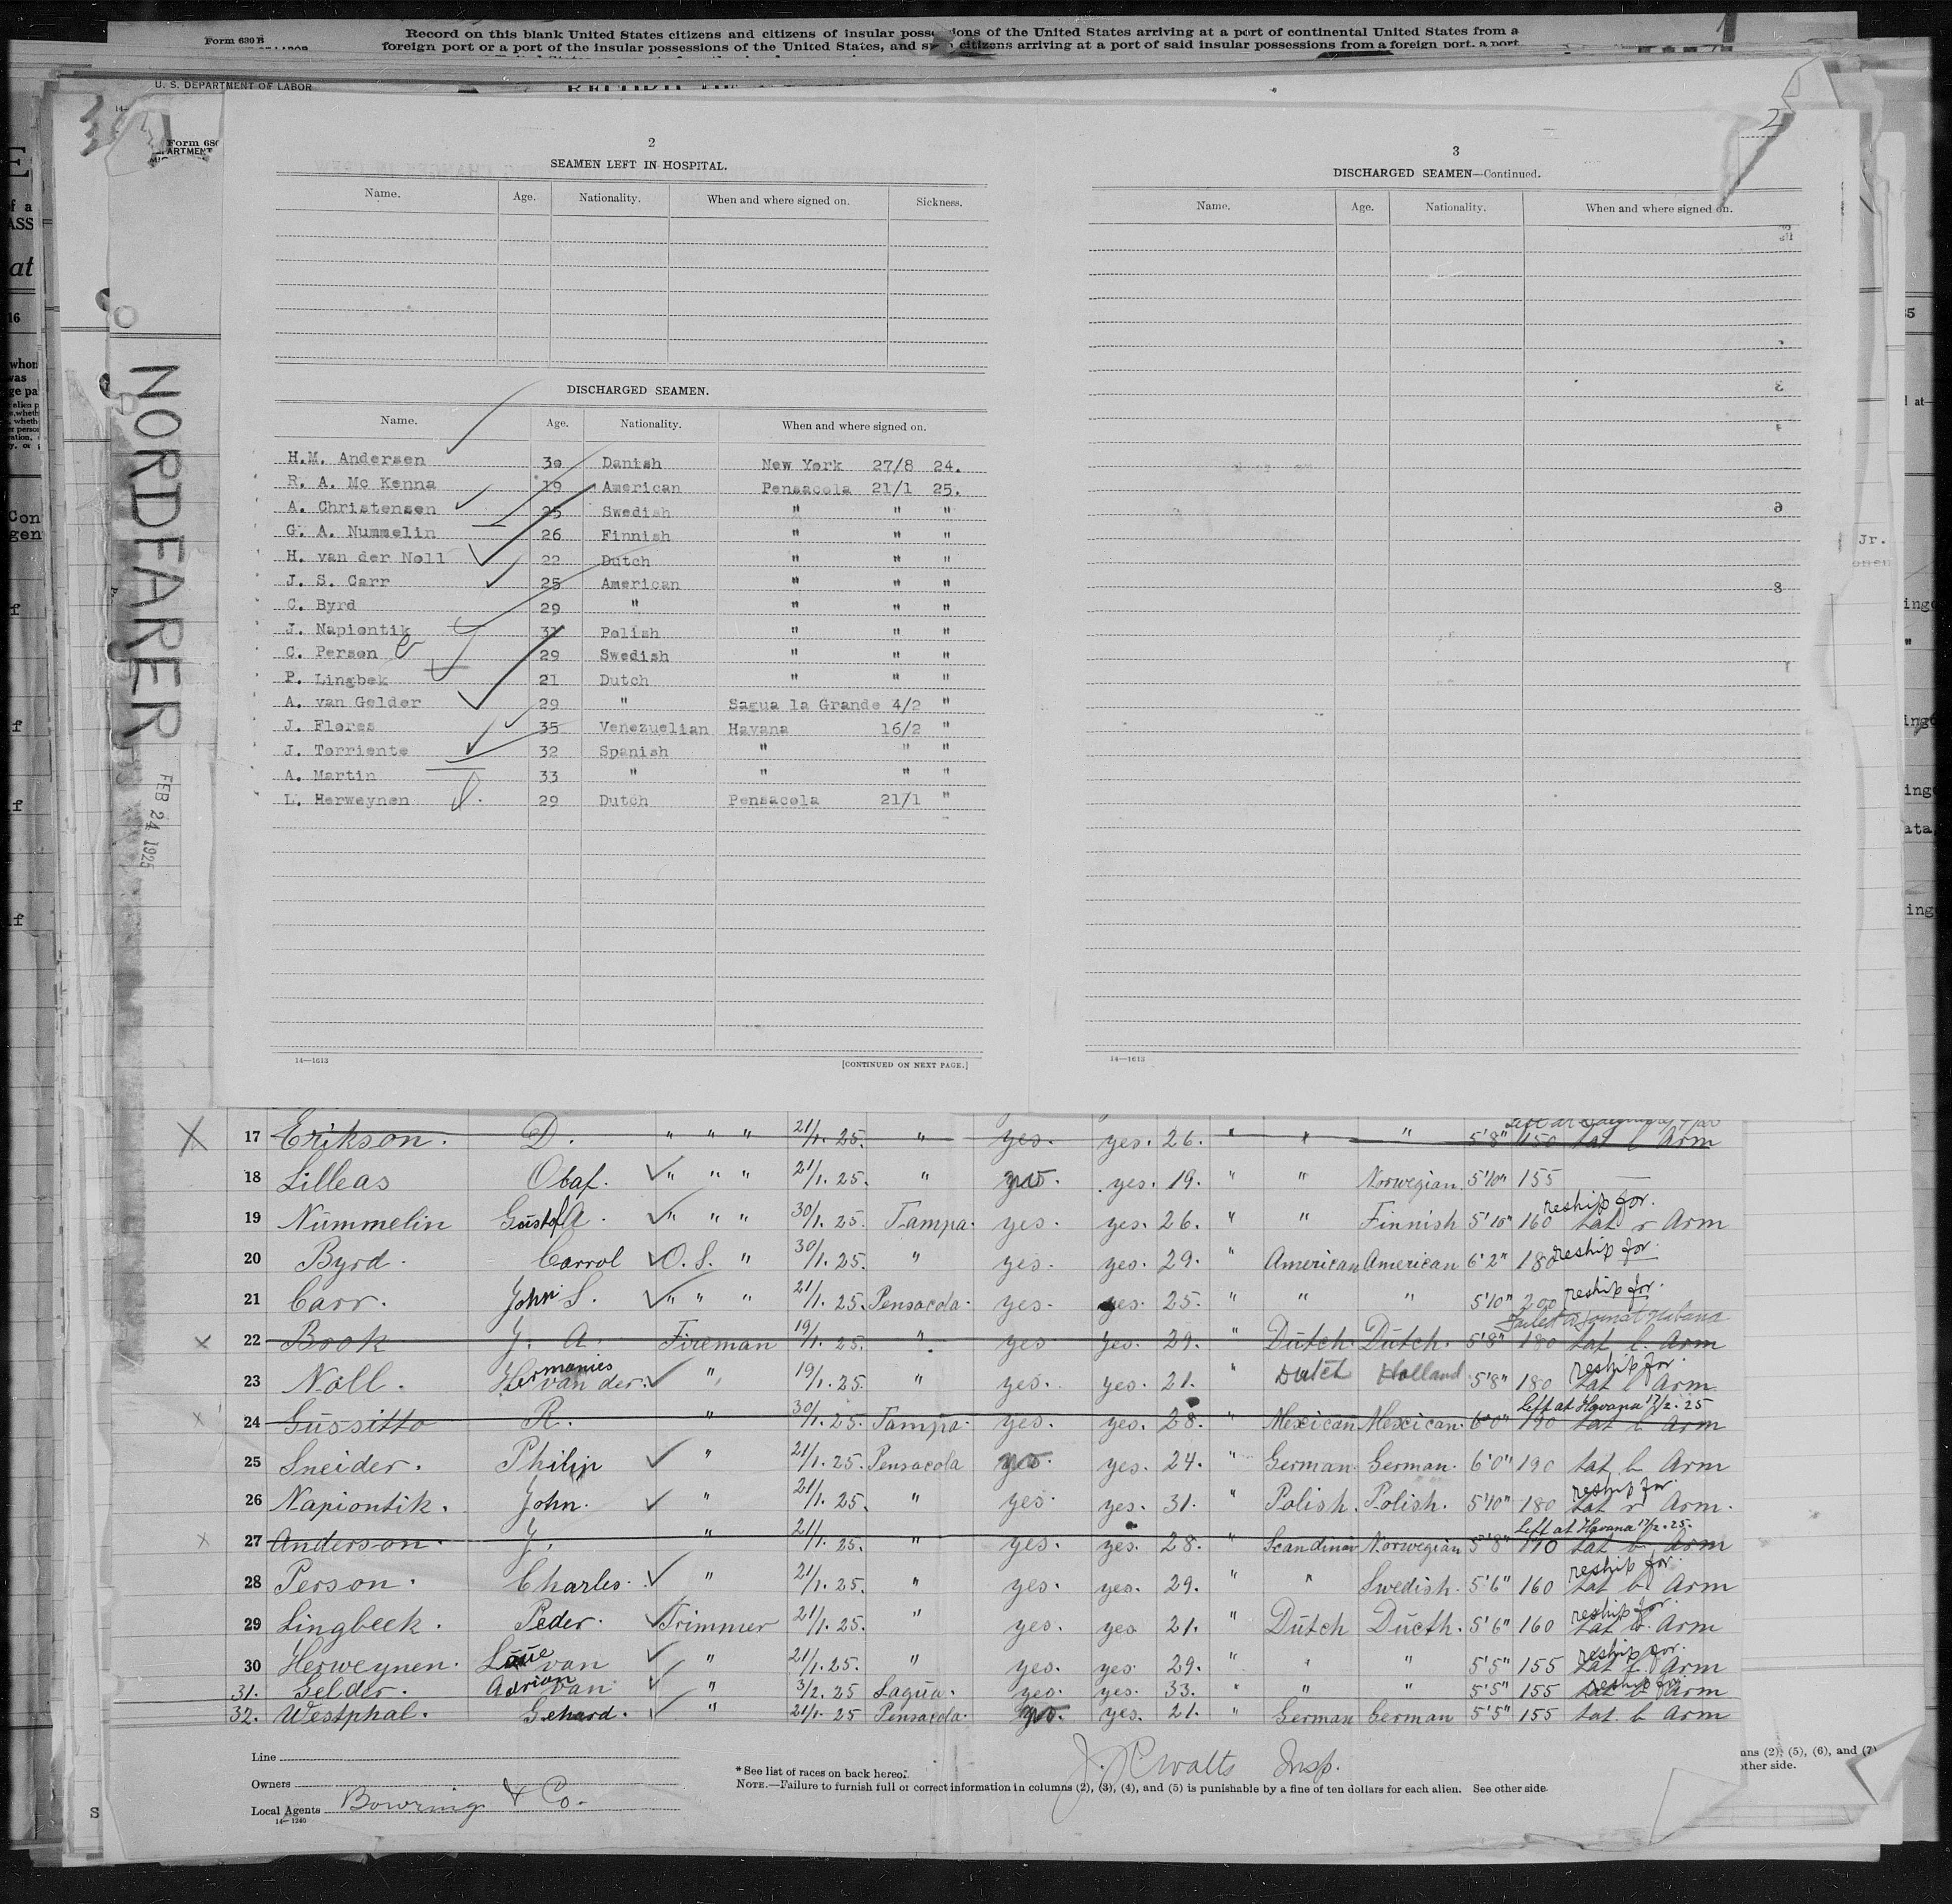 Form 630 B
Record on this blank United States citizens and citizens of insular possessions of the United States arriving at a port of continental United States from a
foreign port or a port of the insular possessions of the United States, and such citizens arriving at a port of said insular possessions from a foreign port, a port
U. S. DEPARTMENT OF LABOR
Form 680
ARTMENT
NORDFARER
FEB 24 1925
2
SEAMEN LEFT IN HOSPITAL.
Name. Age. Nationality. When and where signed on. Sickness.
DISCHARGED SEAMEN.
Name. Age. Nationality. When and where signed on.
H.M. Andersen 30 Danish New York 27/8 24.
R. A. Mc Kenna 19 American Pensacola 21/1 25.
A. Christensen 25 Swedish " " "
G. A. Nummelin 26 Finnish " " "
H. van der Noll 22 Dutch " " "
J. S. Carr 25 American " " "
C. Byrd 29 " " " "
J. Napiontik 31 Polish " " "
C. Person 29 Swedish " " "
P. Lingbek 21 Dutch " " "
A. van Gelder 29 " Sagua la Grande 4/2 "
J. Flores 35 Venezuelian Havana 16/2 "
J. Torriente 32 Spanish " " "
A. Martin 33 " " " "
L. Herweynen 29 Dutch Pensacola 21/1 "
14—1613 [CONTINUED ON NEXT PAGE.]
2
3
DISCHARGED SEAMEN—Continued.
Name. Age. Nationality. When and where signed on.
14—1613
17 Erikson. D. " " " 21/1. 25. " yes. yes. 26. " " " 5'8" 150 tat l Arm
18 Lilleas Olaf. " " " 21/1. 25. " yes. yes. 19. " " Norwegian 5'10" 155
19 Nummelin Gustaf A. " " " 30/1. 25. Tampa. yes. yes. 26. " " Finnish 5'10" 160 reship for. tat r Arm
20 Byrd. Carrol O. S. " 30/1. 25. " yes. yes. 29. " American American 6'2" 180 reship for.
21 Carr. John S. " " " 21/1. 25. Pensacola. yes. yes. 25. " " " 5'10" 200 reship for.
22 Book J. A. Fireman 19/1. 25. " yes yes. 29. " Dutch. Dutch. 5'8" 180 tat l. Arm
23 Noll. Hermanies van der. " 19/1. 25. " yes. yes. 21. " Dutch Holland 5'8" 180 reship for. tat l Arm.
24 Gussitto R. " 30/1. 25. Tampa. yes. yes. 28. " Mexican Mexican. 6'0" 190 Left at Havana 17/2. 25 tat b Arm
25 Sneider. Philip " 21/1. 25. Pensacola yes. yes. 24. " German German. 6'0" 190 tat b Arm
26 Napiontik. John. " 21/1. 25. " yes. yes. 31. " Polish. Polish. 5'10" 180 reship for tat r Arm.
27 Anderson. J. " 21/1. 25. " yes. yes. 28. " Scandinav Norwegian 5'8" 170 Left at Havana 17/2. 25. tat b. Arm
28 Person. Charles. " 21/1. 25. " yes. yes. 29. " " Swedish. 5'6" 160 reship for. tat b. Arm
29 Lingbeek. Peder. Trimmer 21/1. 25. " yes. yes 21. " Dutch Ducth. 5'6" 160 reship for. tat b. Arm
30 Herweynen. Loue van " 21/1. 25. " yes. yes. 29. " " " 5'5" 155 reship for. tat l. Arm
31. Gelder. Adrian van " 3/2. 25 Sagua. yes. yes. 33. " " " 5'5" 155 reship for tat b Arm
32. Westphal. Gehard. " 21/1. 25 Pensacola. yes. yes. 21. " German German 5'5" 155 tat. b Arm
Line
Owners
Local Agents Bowring & Co.
14—1240
* See list of races on back hereof.
J. P. Walts Insp.
NOTE.—Failure to furnish full or correct information in columns (2), (3), (4), and (5) is punishable by a fine of ten dollars for each alien. See other side
mns (2), (5), (6), and (7)
other side.